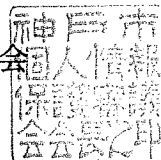 神戸市
個人情報
保護審議
会会長印